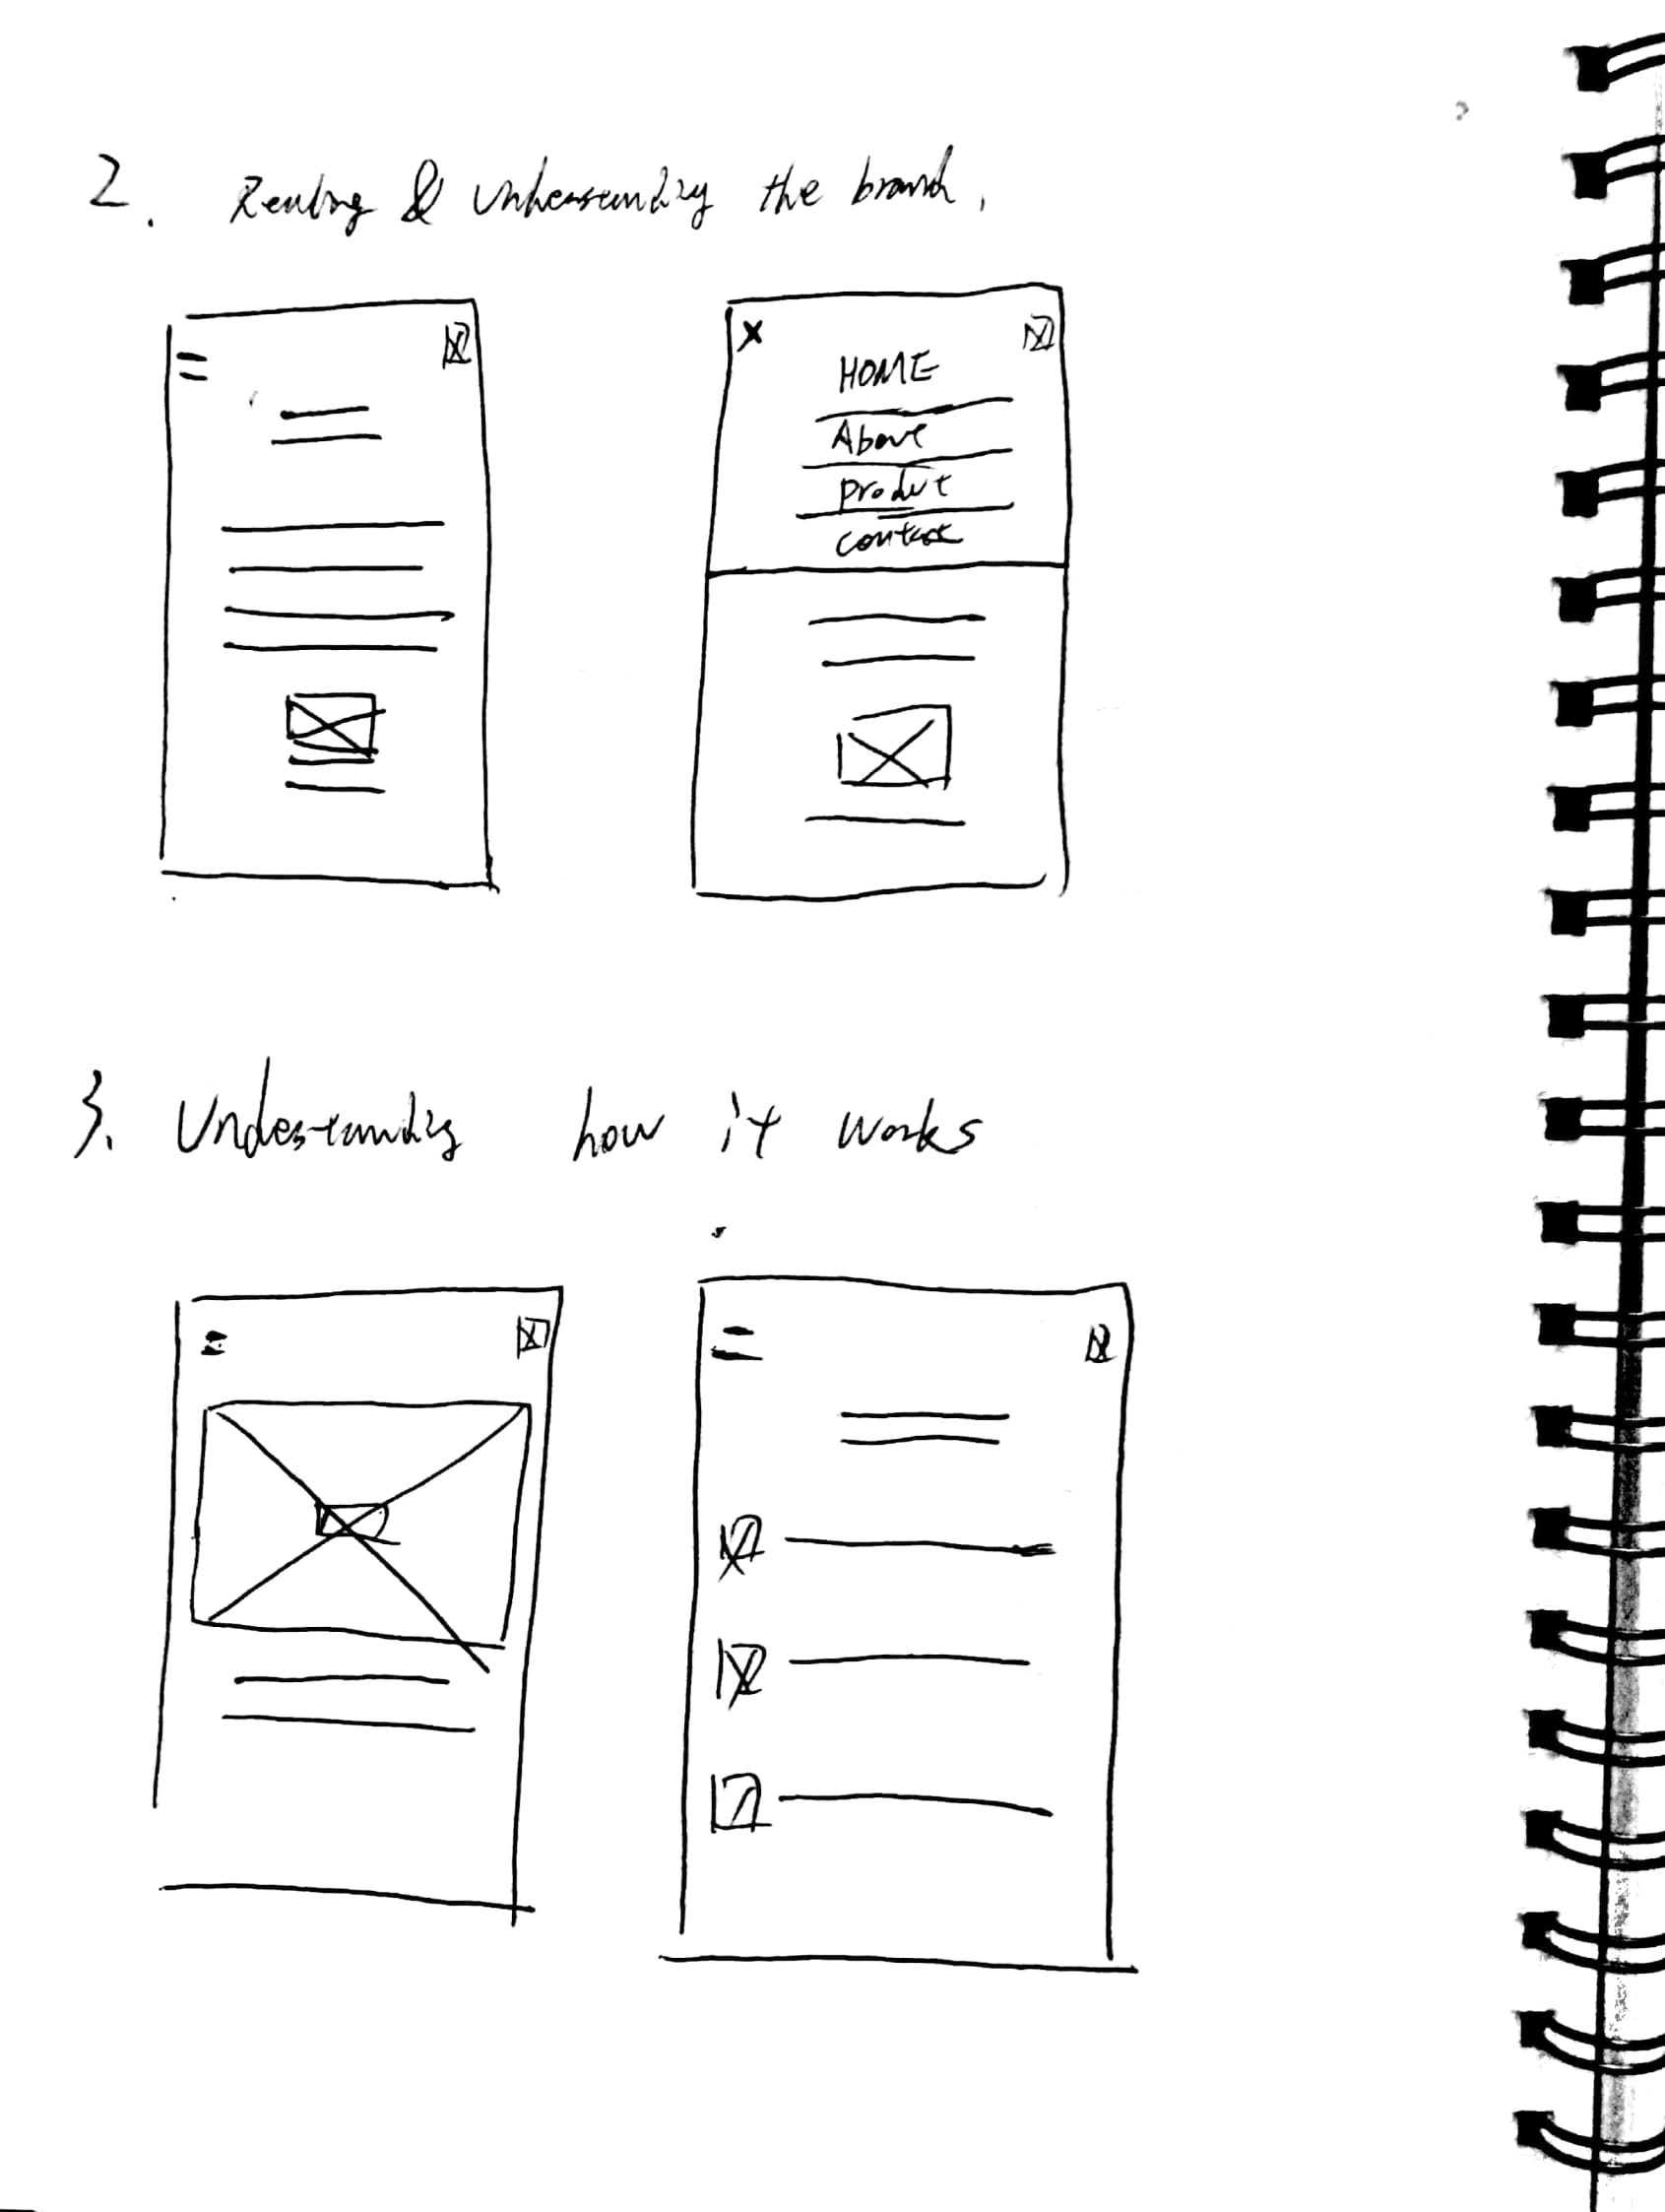 2. Reading & Understanding the brand.
HOME
About
Product
Contact
3. Understanding how it works